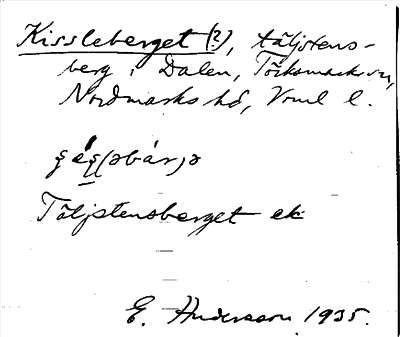 Kissleberget (?), täljstens-
berg i Dalen, Töcksmarks sn,
Nordmarks hd, Vrml l.
Täljstensberget ek
E. Andersson 1935.